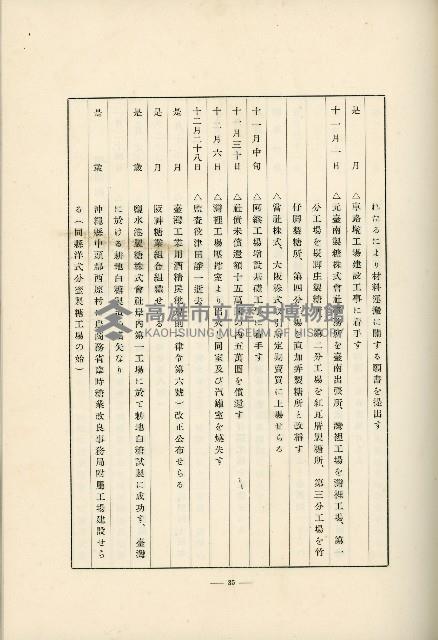 れたるにより材料運搬に關する願書を提出す
是　月　△車路墘工場建設工事に着手す
十一月一日　△元臺南製糖株式會社事務所を臺南出張所、灣裡工場を灣裡工場、第一
分工場を噍吧哖製糖所、第二分工場を紅瓦厝製糖所、第三分工場を竹
仔脚製糖所、第四分工場を直加弄製糖所と改稱す
△當社株式、大阪株式取引所定期賣買に上場せらる
十一月中旬　△阿緱工場增設基礎工事に着手す
十一月三十日　△社債未償還額十五萬圓の內五萬圓を償還す
十二月六日　△灣裡工場壓搾室より出火し同家及び汽罐室を燒失す
十二月二十八日　△監査役津田靜一逝去す
是　月　臺灣工業用酒精戾稅規則（律令第六號）改正公布せらる
是　月　阪神糖業組合組織せらる
是　歲　鹽水港製糖株式會社岸內第二工場に於て耕地白糖試製に成功す、臺灣
に於ける耕地白糖製造の嚆矢なり
是　歲　沖繩縣中頭郡西原村に農商務省臨時糖業改良事務局附屬工場建設せら
る（同縣洋式分蜜製糖工場の始）
高雄市立歷史博物館
KAOHSIUNG MUSEUM OF HISTORY
— 35 —